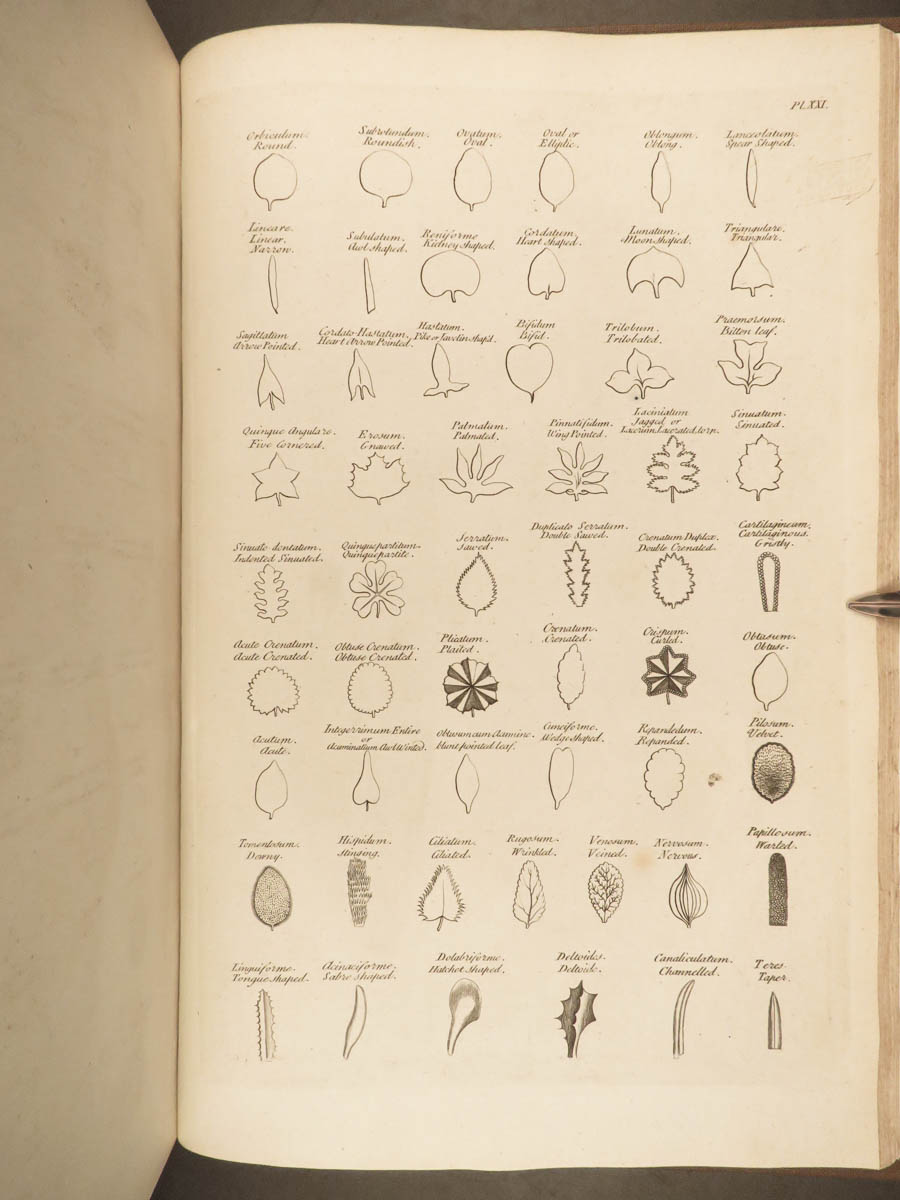 Pl. XXI.
Orbiculum.
Round.
Subrotundum.
Roundish.
Ovatum.
Oval.
Oval or
Elliptic.
Oblongum.
Oblong.
Lanceolatum.
Spear Shaped.
Lineare.
Linear.
Narrow.
Subulatum.
Awl shaped.
Reniforme
Kidney shaped.
Cordatum.
Heart Shaped.
Lunatum.
Moon shaped.
Triangulare.
Triangular.
Sagittatum
Arrow Pointed.
Cordato-Hastatum.
Heart Arrow Pointed.
Hastatum.
Pike or Javelin shap'd.
Bifidum
Bifid.
Trilobum.
Trilobated.
Praemorsum.
Bitten leaf.
Quinque Angulare.
Five Cornered.
Erosum.
Gnawed.
Palmatum.
Palmated.
Pinnatifidum.
Wing Pointed.
Laciniatum
Jagged or
Lacerum, Lacerated, torn.
Sinuatum.
Sinuated.
Sinuato dentatum.
Indented Sinuated.
Quinquepartitum.
Quinquepartite.
Serratum.
Sawed.
Duplicato Serratum.
Double Sawed.
Crenatum Duplex.
Double Crenated.
Cartilagineum.
Cartilaginous.
Gristly.
Acute Crenatum.
Acute Crenated.
Obtuse Crenatum.
Obtuse Crenated.
Plicatum.
Plaited.
Crenatum.
Crenated.
Crispum.
Curled.
Obtusum.
Obtuse.
Acutum.
Acute.
Integerrimum Entire
or
Acuminatum Awl Pointed.
Obtusum cum Acumine.
blunt pointed leaf.
Cuneiforme.
Wedge shaped.
Repandedum.
Repanded.
Pilosum.
Velvet.
Tomentosum.
Downy.
Hispidum.
Stinging.
Ciliatum.
Ciliated.
Rugosum.
Wrinkled.
Venosum.
Veined.
Nervosum.
Nervous.
Papillosum.
Warted.
Linguiforme.
Tongue shaped.
Acinaciforme.
Sabre shaped.
Dolabriforme.
Hatchet Shaped.
Deltoides.
Deltoide.
Canaliculatum.
Channelled.
Teres.
Taper.